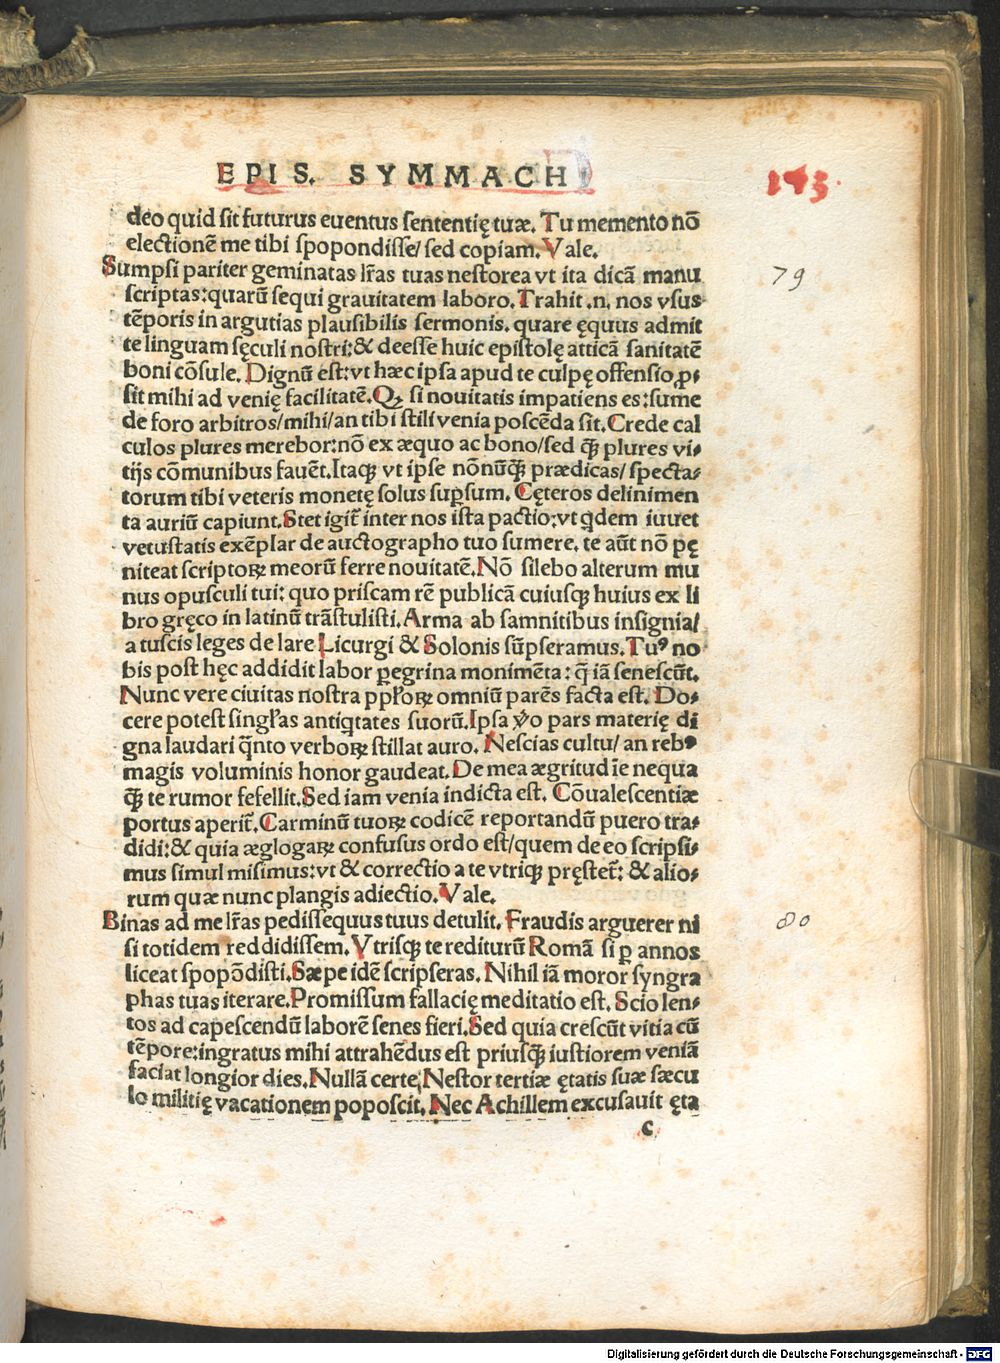 EPIS. SYMMACHI
193.
deo quid sit futurus euentus sententię tuæ. Tu memento nõ
electionē me tibi spopondisse/ sed copiam. Vale.
Sumpsi pariter geminatas lr̃as tuas nestorea vt ita dicã manu
79
scriptas:quarũ sequi grauitatem laboro. Trahit .n. nos vsus
tẽporis in argutias plausibilis sermonis. quare ęquus admit
te linguam sęculi nostri:& deesse huic epistolę atticã sanitatẽ
boni cõsule. Dignũ est:vt hæc ipsa apud te culpę offensio,ꝓ-
sit mihi ad venię facilitatẽ. Qꝫ si nouitatis impatiens es:sume
de foro arbitros/mihi/an tibi stili venia poscẽda sit. Crede cal
culos plures merebor:nõ ex æquo ac bono/sed qꝫ̃ plures vi-
tijs cõmunibus fauẽt.Itaqꝫ vt ipse nõnũqꝫ̃ prædicas/ specta-
torum tibi veteris monetę solus suꝑsum. Cęteros delinimen
ta auriũ capiunt.Stet igit̃ inter nos ista pactio:vt qdem iuuet
vetustatis exẽplar de auctographo tuo sumere. te aũt nõ pę
niteat scriptoꝝ meorũ ferre nouitatẽ. Nõ silebo alterum mu
nus opusculi tui: quo priscam rẽ publicã cuiusqꝫ huius ex li
bro gręco in latinũ trãstulisti. Arma ab samnitibus insignia/
a tuscis leges de lare Licurgi & Solonis sũpseramus. Tuꝰ no
bis post hęc addidit labor ꝑegrina monimẽta: q̃ iã senescũt.
Nunc vere ciuitas nostra ppl̃oꝝ omniũ parẽs facta est. Do-
cere potest singl̃as antiqtates suorũ.Ipsa ꝟo pars materię di
gna laudari q̃nto verboꝝ stillat auro. Nescias cultu/ an rebꝰ
magis voluminis honor gaudeat. De mea ægritudĩe nequa
qꝫ̃ te rumor fefellit.Sed iam venia indicta est. Cõualescentiæ
portus aperit̃. Carminũ tuoꝝ codicẽ reportandũ puero tra-
didi:& quia æglogaꝝ confusus ordo est/quem de eo scripsi-
mus simul misimus:vt & correctio a te vtriqꝫ pręstet̃: & alio-
rum quæ nunc plangis adiectio. Vale.
Binas ad me lr̃as pedissequus tuus detulit. Fraudis arguerer ni
80
si totidem reddidissem. Vtrisqꝫ te rediturũ Romã si ꝑ annos
liceat spopõdisti.Sæpe idẽ scripseras. Nihil iã moror syngra
phas tuas iterare.Promissum fallacię meditatio est. Scio len-
tos ad capescendũ laborẽ senes fieri.Sed quia crescũt vitia cũ
tẽpore:ingratus mihi attrahẽdus est priusqꝫ̃ iustiorem veniã
faciat longior dies. Nullã certe Nestor tertiæ ętatis suæ sæcu
lo militię vacationem poposcit. Nec Achillem excusauit ęta
c
Digitalisierung gefördert durch die Deutsche Forschungsgemeinschaft - DFG